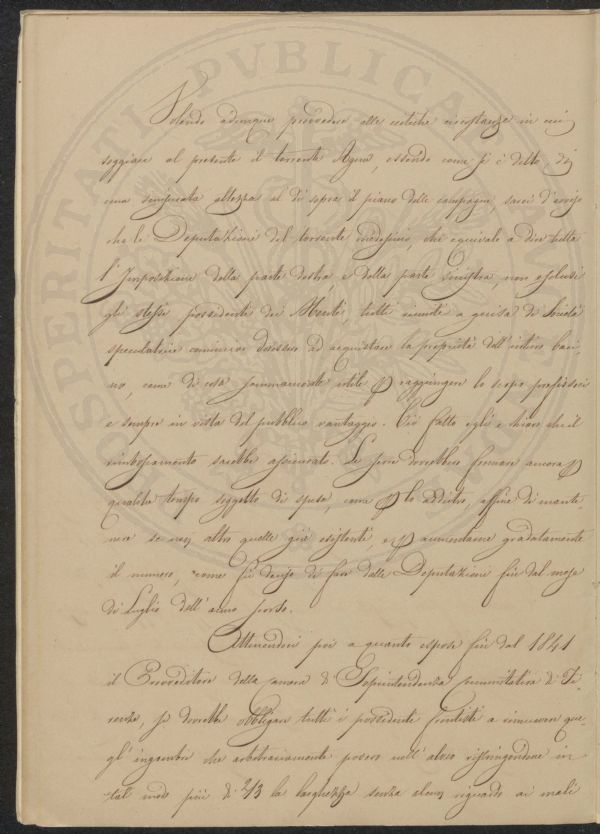 Volendo adunque provvedere alle critiche circostanze in cui
soggiace al presente il torrente Agna, essendo come si è detto, di
una smisurata altezza al di sopra il piano delle campagne sarei d'avviso
che le Deputazioni del torrente medesimo, che equivale a dire tutta
l'Imposizione della parte destra e della parte sinistra, non esclusi
gli stessi possidenti dei Monti, tutti riuniti a guisa di Società
speculatrice dovessero ad acquistare la proprietà dell'intiero baci-
no, come di cosa sommamente utile p raggiungere lo scopo prefissoci
e sempre in vista del pubblico vantaggio. Ciò fatto egli è chiaro che il
rimboscamento sarebbe assicurato. Le serre dovrebbero formare ancora p
qualche tempo soggetto di spese, come p lo addietro, affine di mante-
nere se non altro quelle già esistenti, e p aumentarne gradatamente
il numero, come fu deciso di fare dalle Deputazioni fin dal mese
di Luglio dell'anno scorso.
Attenendosi poi a quanto espose fin dal 1841
il Provveditore della camera di Soprintendenza comunitativa di Fi-
renze, si dovrebbe obbligare tutti i possidenti frontisti a rimuovere que-
gl'ingombri che arbitrariamente posero nell'alveo ristringendone in
tal modo più di 2/3 la larghezza senza alcun riguardo ai mali
PROSPERITATI PVBLICAE